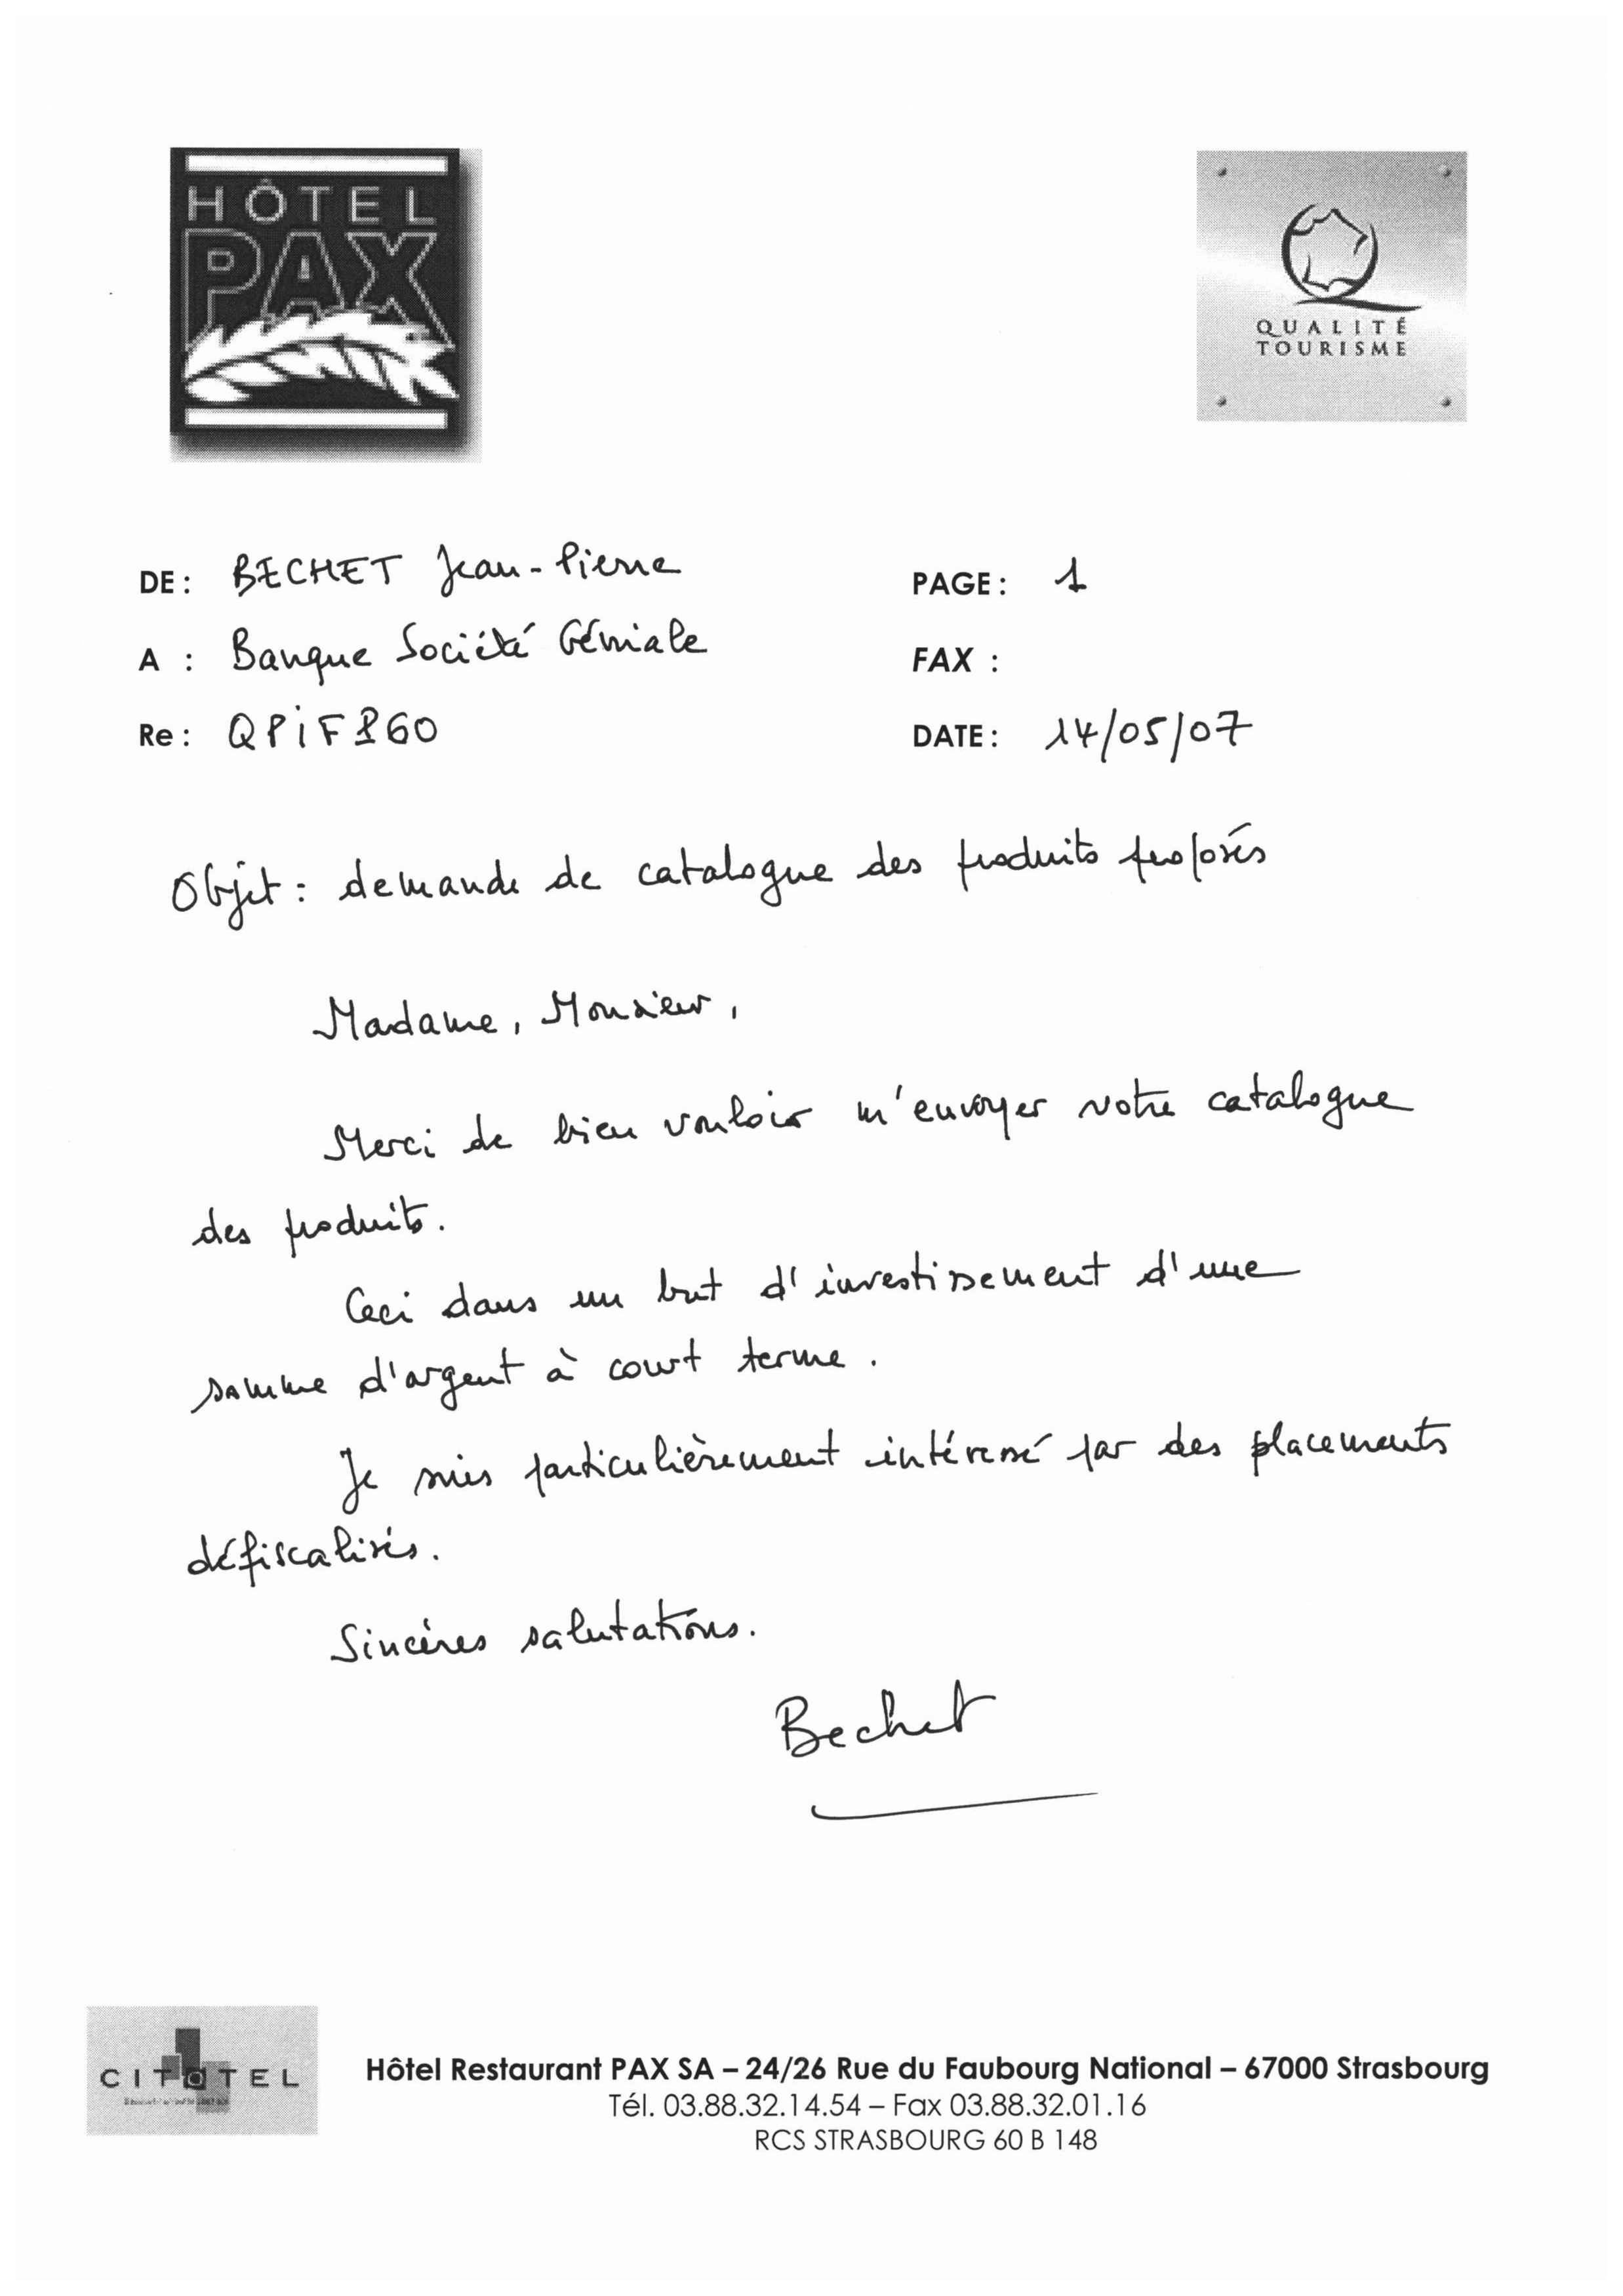 HÔTEL
PAX
QUALITÉ
TOURISME
DE : BECHET Jean-Pierre
PAGE : 1
A : Banque Société Géniale
FAX :
Re : QPiF860
DATE : 14/05/07
Objet : demande de catalogue des produits proposés
Madame, Monsieur,
Merci de bien vouloir m'envoyer votre catalogue
des produits.
Ceci dans un but d'investissement d'une
somme d'argent à court terme.
Je suis particulièrement intéressé par des placements
défiscalisés.
Sincères salutations.
Bechet
CITOTEL
Hôtel Restaurant PAX SA – 24/26 Rue du Faubourg National – 67000 Strasbourg
Tél. 03.88.32.14.54 – Fax 03.88.32.01.16
RCS STRASBOURG 60 B 148